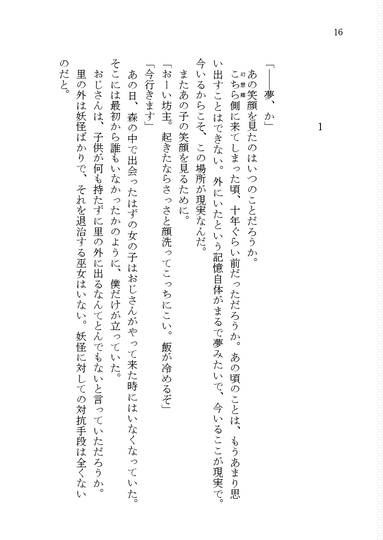 16
1
「――夢、か」
あの笑顔を見たのはいつのことだろうか。
こちら側に来てしまった頃、十年ぐらい前だっただろうか。あの頃のことは、もうあまり思
い出すことはできない。外にいたという記憶自体がまるで夢みたいで、今いるここが現実で。
今いるからこそ、この場所が現実なんだ。
またあの子の笑顔を見るために。
「おーい坊主。起きたならさっさと顔洗ってこっちにこい。飯が冷めるぞ」
「今行きます」
あの日、森の中で出会ったはずの女の子はおじさんがやって来た時にはいなくなっていた。
そこには最初から誰もいなかったかのように、僕だけが立っていた。
おじさんは、子供が何も持たずに里の外に出るなんてとんでもないと言っていただろうか。
里の外は妖怪ばかりで、それを退治する巫女はいない。妖怪に対しての対抗手段は全くない
のだと。